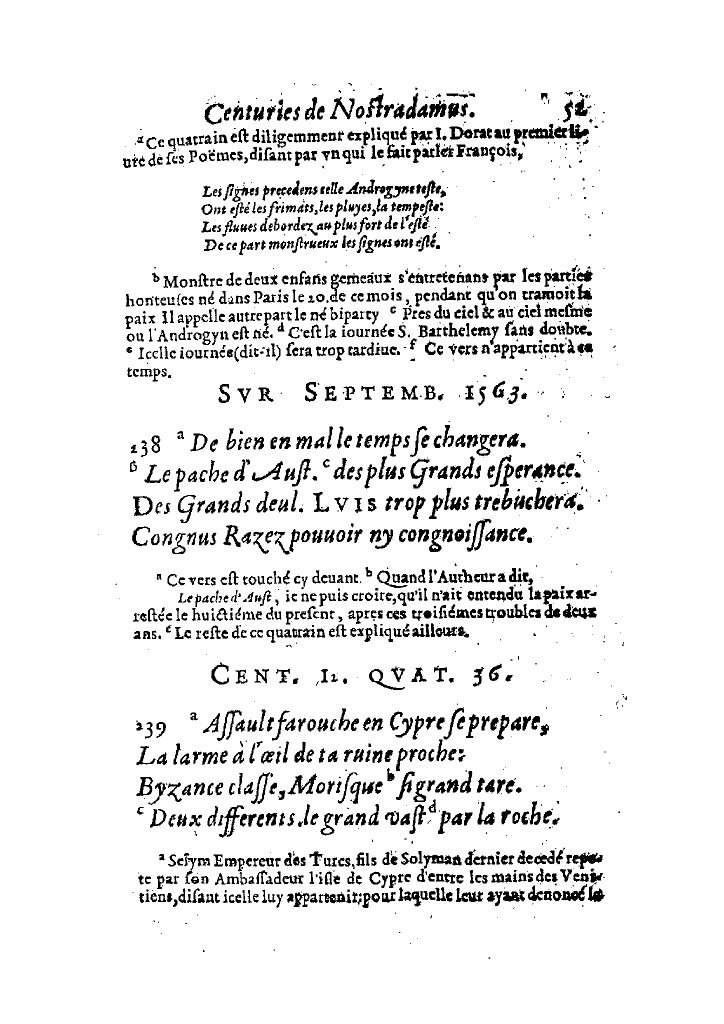 Centuries de Nostradamus. 52
a Ce quatrain est diligemment expliqué par I. Dorat au premier li-
ure de ses Poëmes, disant par vn qui le fait parler François,
Les signes precedens celle Androgyne teste,
Ont esté les frimats, les pluyes, la tempeste:
Les fluues debordez au plus fort de l'esté
De ce part monstrueux les signes ont esté.
b Monstre de deux enfans gemeaux s'entretenans par les parties
honteuses né dans Paris le 20. de ce mois, pendant qu'on tramoit la
paix Il appelle autrepart le né biparty c Pres du ciel & au ciel mesme
ou l'Androgyn est né. d C'est la iournée S. Barthelemy sans doubte.
e Icelle iournée (dit-il) sera trop tardiue. f Ce vers n'appartient à ce
temps.
SVR SEPTEMB. 1563.
238 a De bien en mal le temps se changera.
b Le pache d'Aust. c des plus Grands esperance.
Des Grands deul. LVIS trop plus trebuchera.
Congnus Razez pouuoir ny congnoissance.
a Ce vers est touché cy deuant. b Quand l'Autheur a dit,
Le pache d'Aust, ie ne puis croire, qu'il n'ait entendu la paix ar-
restée le huictiéme du present, apres ces troisiémes troubles de deux
ans. c Le reste de ce quatrain est expliqué ailleurs.
CENT. 12. QVAT. 36.
239 a Assault farouche en Cypre se prepare,
La larme à l'œil de ta ruine proche:
Byzance classe, Morisque b si grand tare.
c Deux differents, le grand vast d par la roche.
a Selym Empereur des Turcs, fils de Solyman dernier decedé repe-
te par son Ambassadeur l'isle de Cypre d'entre les mains des Veni-
tiens, disant icelle luy appartenir; pour laquelle leur ayant denoncé la